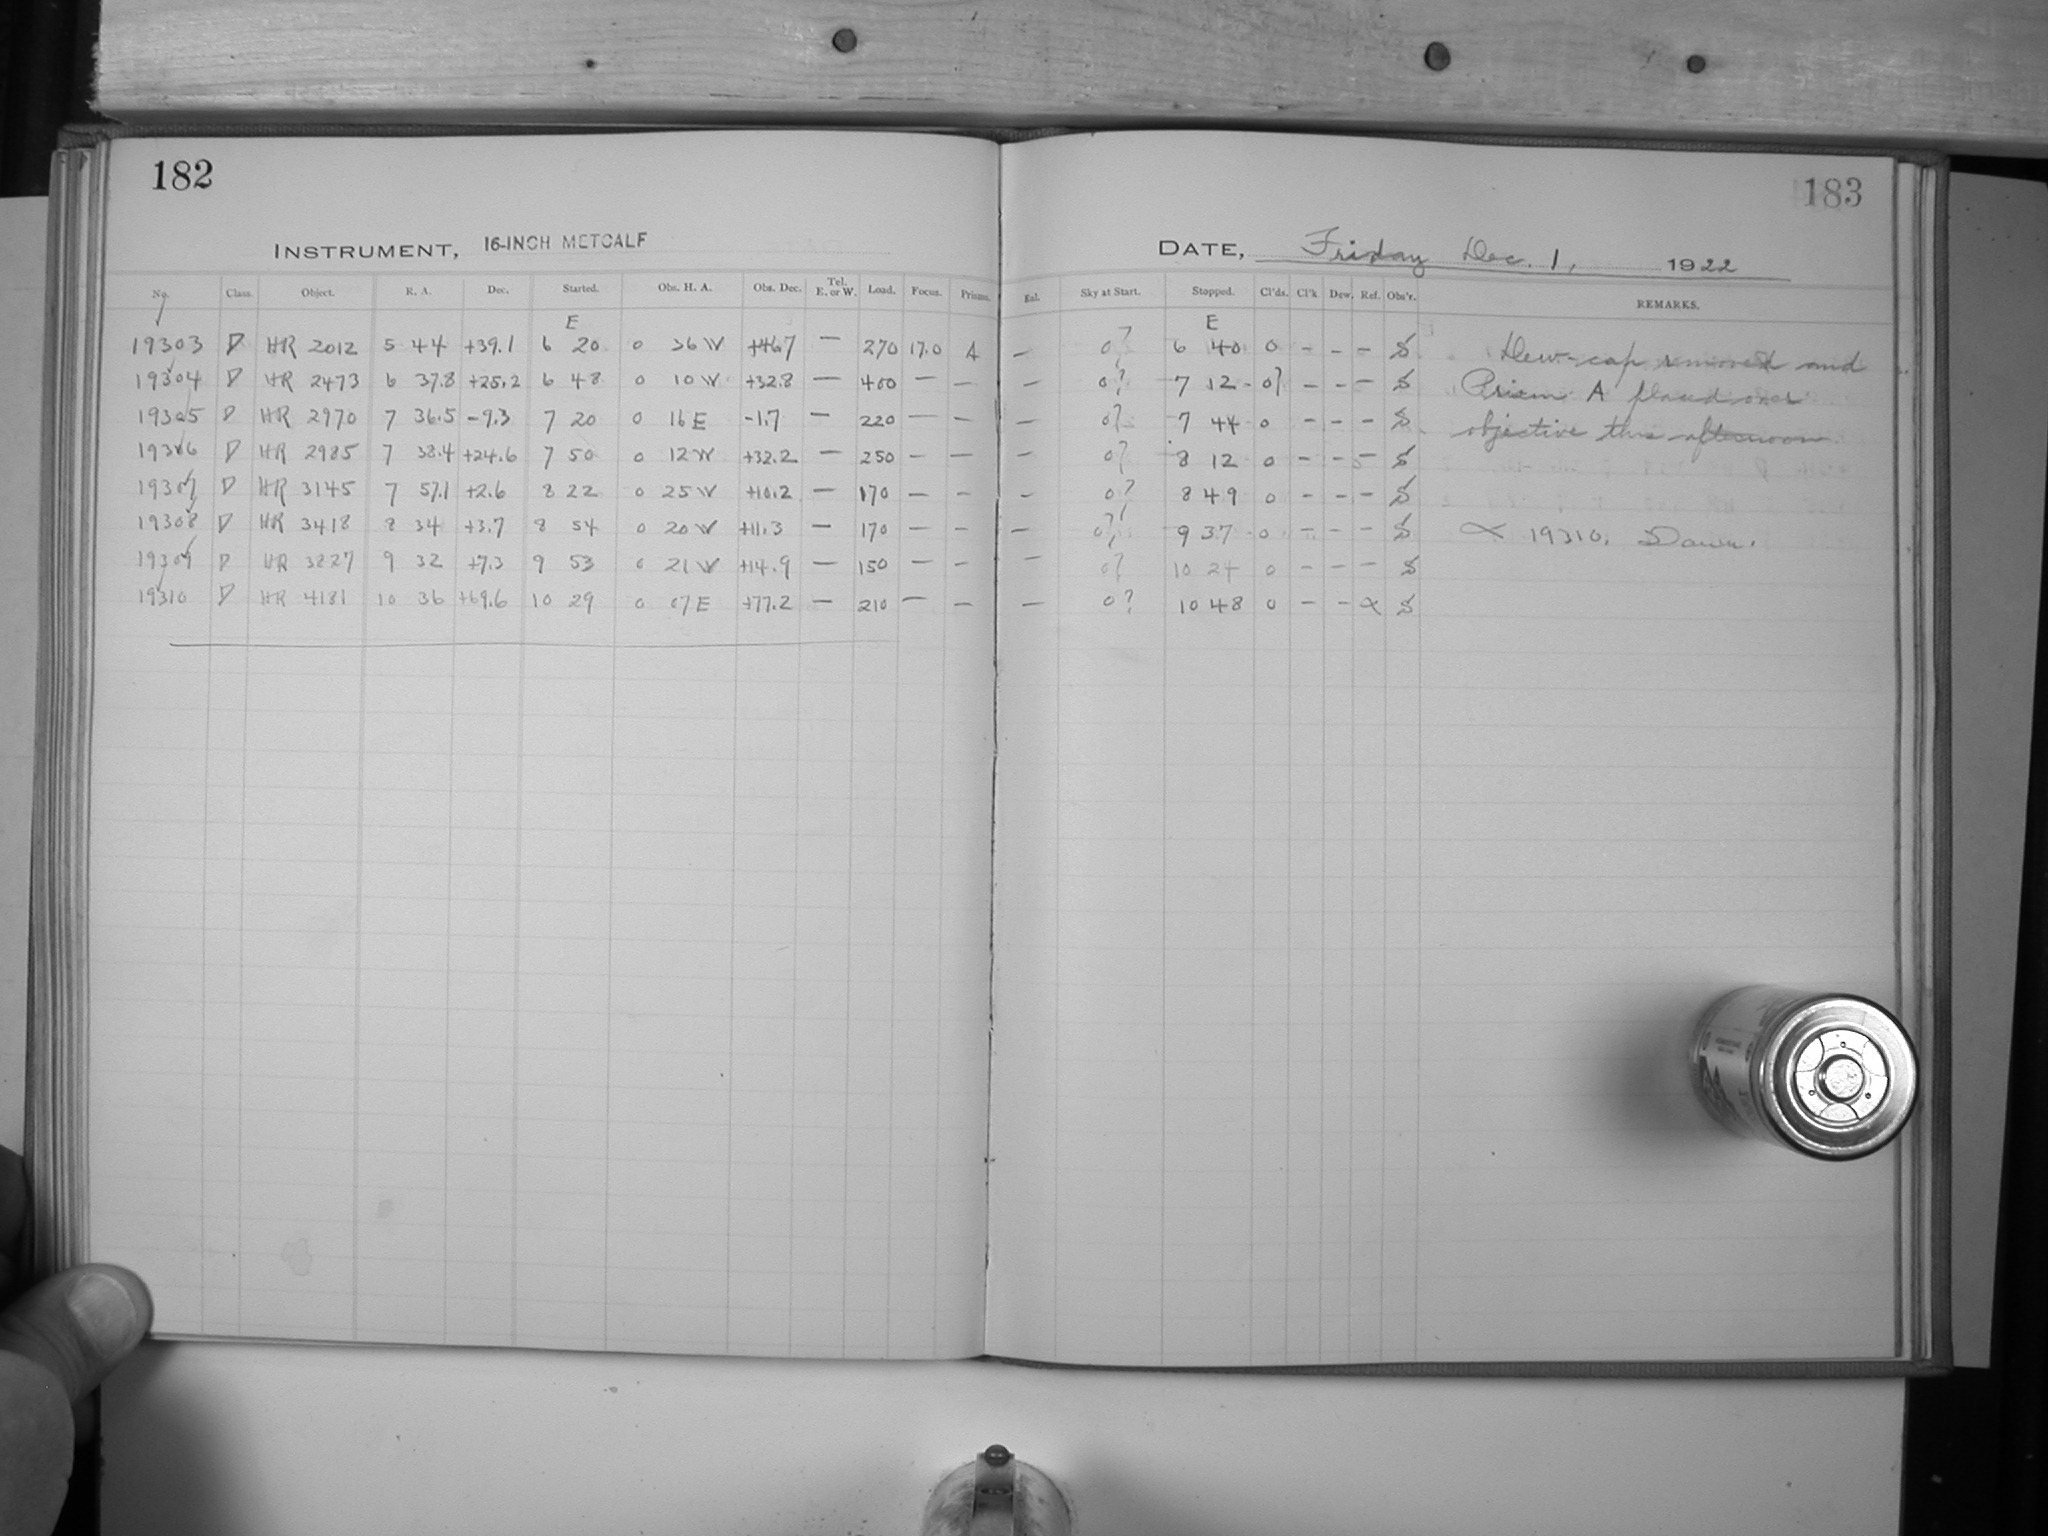 182
183
INSTRUMENT, 16-INCH METCALF
DATE, Friday Dec. 1, 1922
No. Class. Object. R. A. Dec. Started. Obs. H. A. Obs. Dec. Tel. E. or W. Load. Focus. Prisms. Sky at Start. Stopped. Cl'ds. Cl'k Dew. Ref. Obs'r. REMARKS.
E E
19303 D HR 2012 5 44 +39.1 6 20 0 36 W +46.7 — 270 17.0 A — 0? 6 40 0 - - - S Dew-cap removed and
19304 D HR 2473 6 37.8 +25.2 6 48 0 10 W +32.8 — 400 — — — 0? 7 12 0? - - - S Prism A placed over
19305 D HR 2970 7 36.5 -9.3 7 20 0 16 E -1.7 — 220 — — — 0? 7 44 0 - - - S objective this afternoon.
19306 D HR 2985 7 38.4 +24.6 7 50 0 12 W +32.2 — 250 — — — 0? 8 12 0 - - - S
19307 D HR 3145 7 57.1 +2.6 8 22 0 25 W +10.2 — 170 — — — 0? 8 49 0 - - - S
19308 D HR 3418 8 34 +3.7 8 54 0 20 W +11.3 — 170 — — — 0? 9 37 0 - - - S α 19310. Dawn.
19309 D HR 3827 9 32 +7.3 9 53 0 21 W +14.9 — 150 — — — 0? 10 24 0 - - - S
19310 D HR 4181 10 36 +69.6 10 29 0 07 E +77.2 — 210 — — — 0? 10 48 0 - - α S